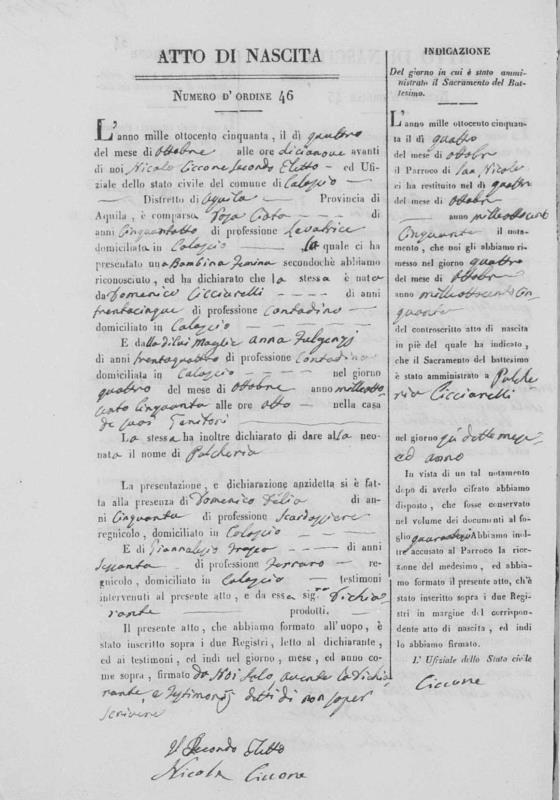 ATTO DI NASCITA
NUMERO D'ORDINE 46
L'anno mille ottocento cinquanta, il dì quattro
del mese di ottobre alle ore diciannove avanti
di noi Nicola Ciccone Secondo Eletto ed Ufi-
ziale dello stato civile del comune di Calascio
Distretto di Aquila Provincia di
Aquila, è comparsa di
anni Cinquantotto di professione Levatrice
domiciliata in Calascio la quale ci ha
presentato una Bambina Femina secondochè abbiamo
riconosciuto, ed ha dichiarato che la stessa è nata
da Domenico Cicciarelli di anni
trentacinque di professione Contadino
domiciliato in Calascio
E dalla di lui Moglie Anna Fulgenzj
di anni trentaquattro di professione Contadina
domiciliata in Calascio nel giorno
quattro del mese di ottobre anno milleotto-
cento Cinquanta alle ore otto nella casa
de suoi Genitori
La stessa ha inoltre dichiarato di dare alla neo-
nata il nome di Pulcheria
La presentazione, e dichiarazione anzidetta si è fat-
ta alla presenza di Domenico D'Elia di an-
ni Cinquanta di professione Scardassiere
regnicolo, domiciliato in Calascio
E di Giannalesio di anni
sessanta di professione Ferraro re-
gnicolo, domiciliato in Calascio testimoni
intervenuti al presente atto, e da essa sig.ra Dichia-
rante prodotti.
Il presente atto, che abbiamo formato all'uopo, è
stato inscritto sopra i due Registri, letto al dichiarante,
ed ai testimoni, ed indi nel giorno, mese, ed anno co-
me sopra, firmato da Noi solo, avente la Dichia-
rante, e Testimonj detti di non saper
scrivere
Il Secondo Eletto
Nicola Ciccone
INDICAZIONE
Del giorno in cui è stato ammi-
nistrato il Sacramento del Bat-
tesimo.
L'anno mille ottocento cinquan-
ta il dì quattro
del mese di ottobre
il Parroco di San Nicola
ci ha restituito nel dì quattro
del mese di ottobre
anno milleottocento
Cinquanta il nota-
mento, che noi gli abbiamo ri-
messo nel giorno quattro
del mese di ottobre
anno milleottocento Cin-
quanta
del controscritto atto di nascita
in piè del quale ha indicato,
che il Sacramento del battesimo
è stato amministrato a Pulche-
ria Cicciarelli
nel giorno più detto mese
ed anno
In vista di un tal notamento
dopo di averlo cifrato abbiamo
disposto, che fosse conservato
nel volume dei documenti al fo-
glio quarantasei Abbiamo indi-
tre accusato al Parroco la rice-
zione del medesimo, ed abbia-
mo formato il presente atto, ch'è
stato inscritto sopra i due Regi-
stri in margine del corrispon-
dente atto di nascita, ed indi
lo abbiamo firmato.
L' Ufiziale dello Stato civile
Ciccone